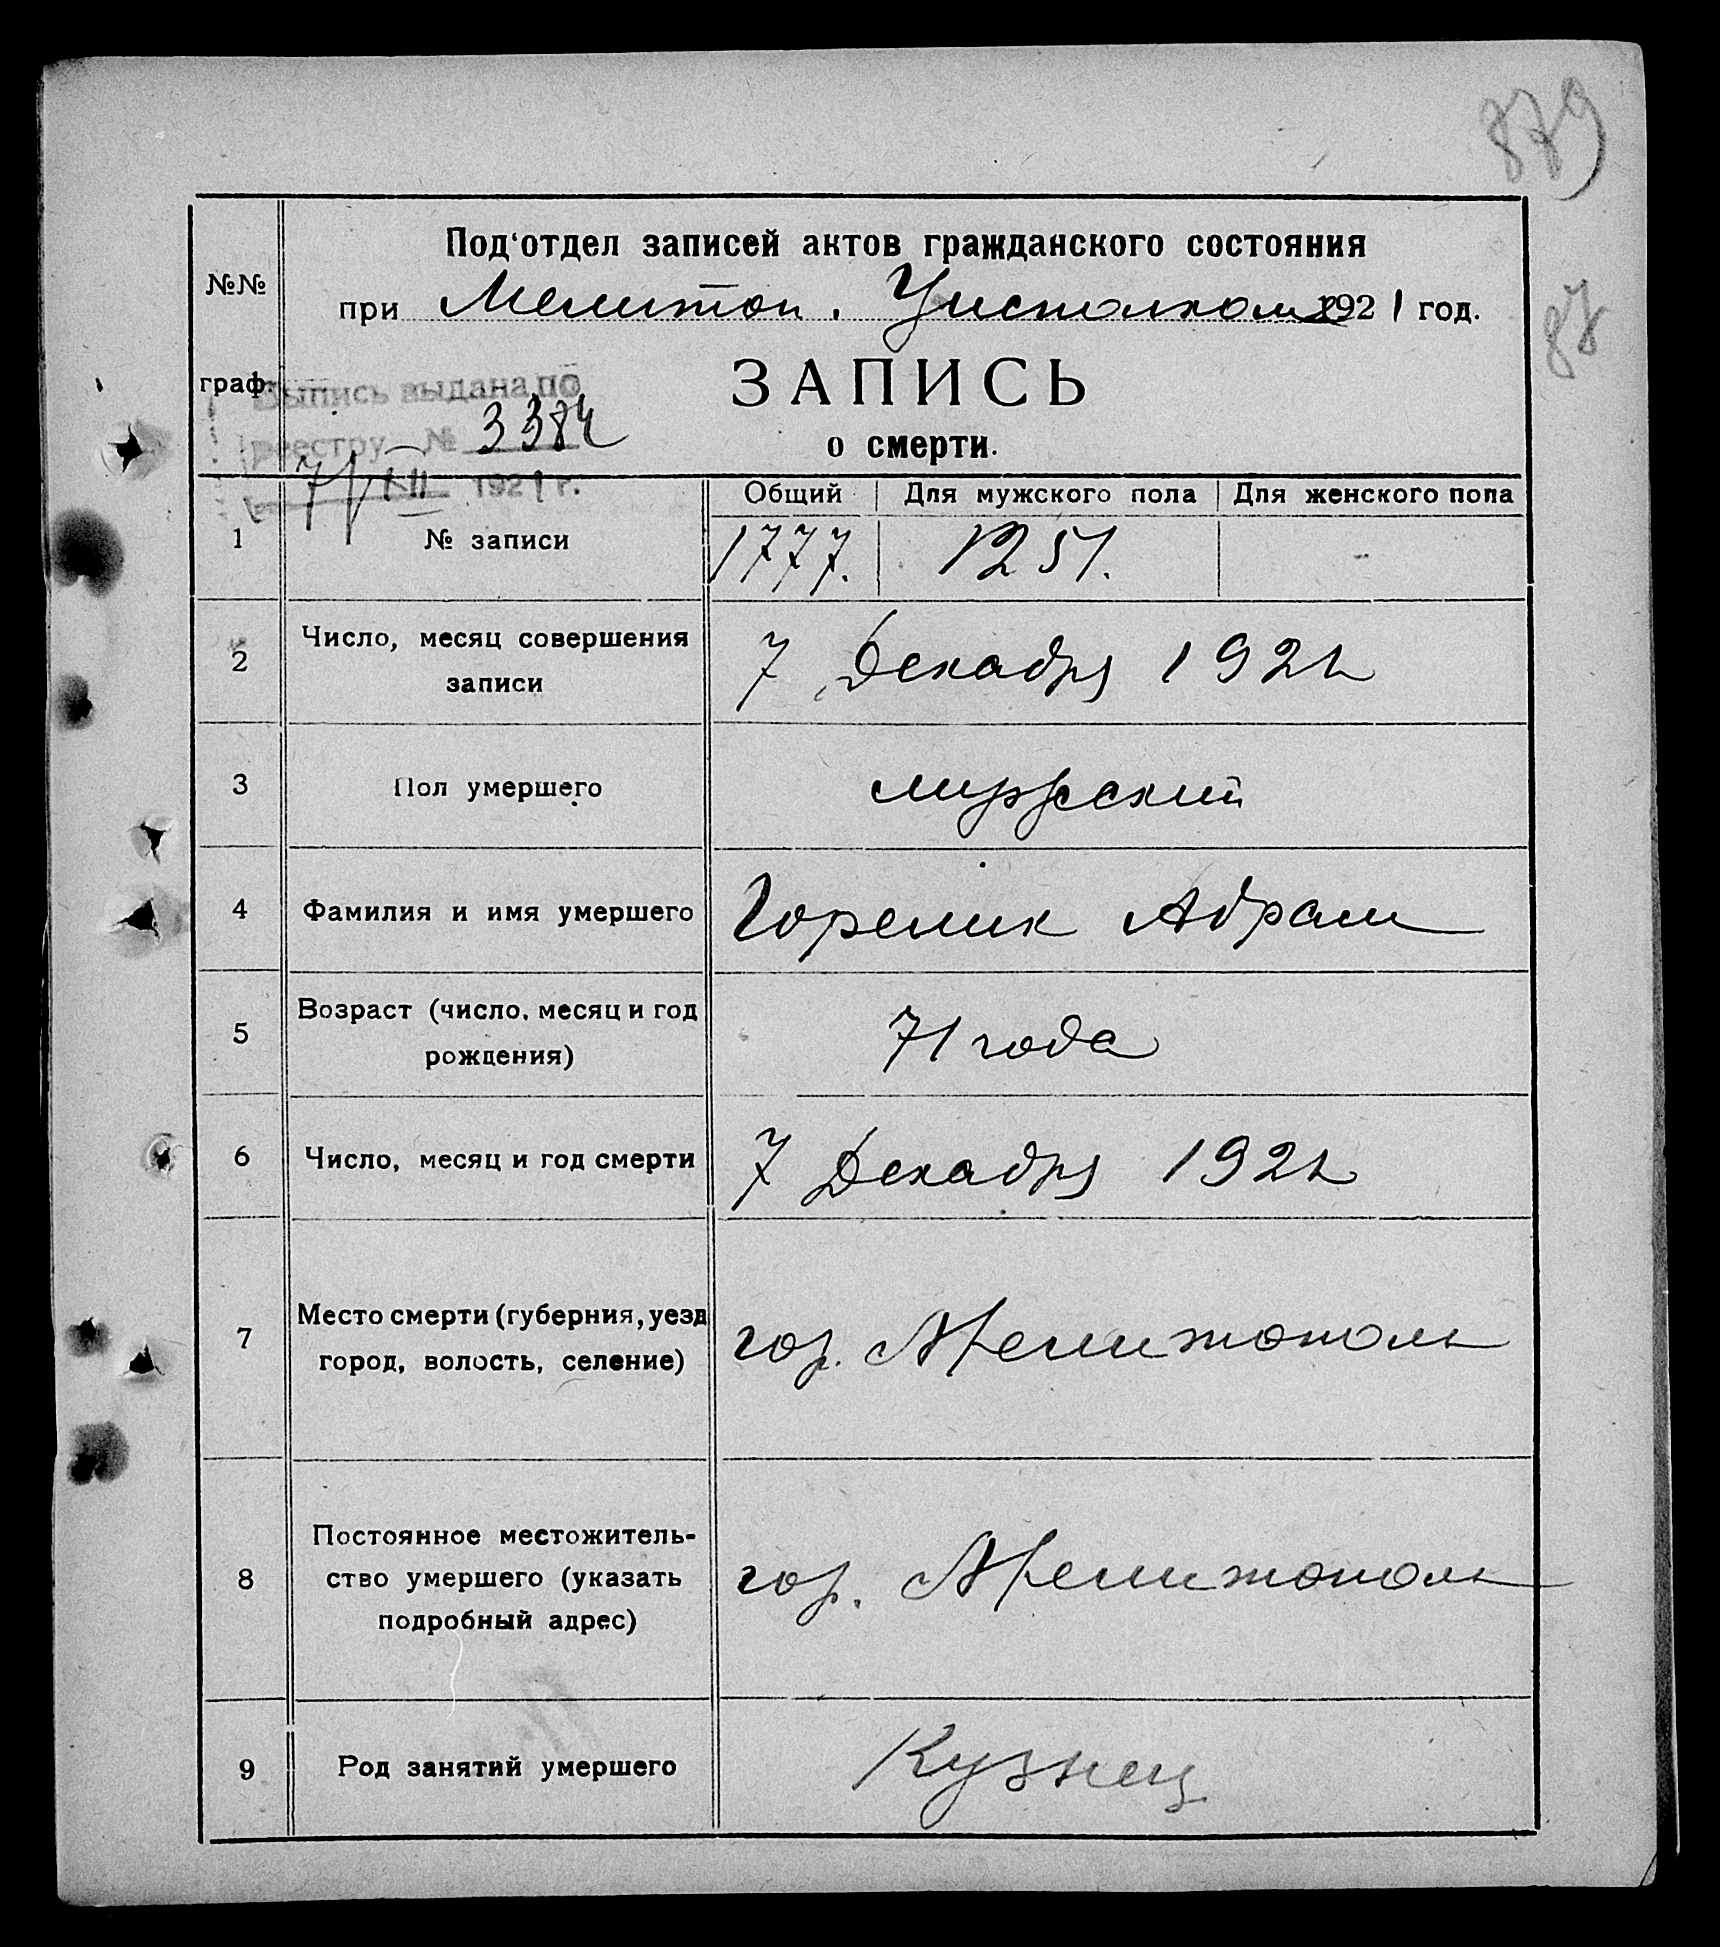 879
87
№№
граф.
Под'отдел записей актов гражданского состояния
при Мелитоп. Уисполкоме 1921 год.
ЗАПИСЬ
о смерти.
Выпись выдана по
реестру № 3384
7/XII 1921 г.
Общий Для мужского пола Для женского пола
1 № записи 1777. 1251. -
2 Число, месяц совершения
записи
7 Декабря 1921
3 Пол умершего мужской
4 Фамилия и имя умершего Горелик Абрам
5 Возраст (число, месяц и год
рождения)
71 года
6 Число, месяц и год смерти 7 Декабря 1921
7 Место смерти (губерния, уезд
город, волость, селение)
гор. Мелитополь
8 Постоянное местожитель-
ство умершего (указать
подробный адрес)
гор. Мелитополь
9 Род занятий умершего Кузнец